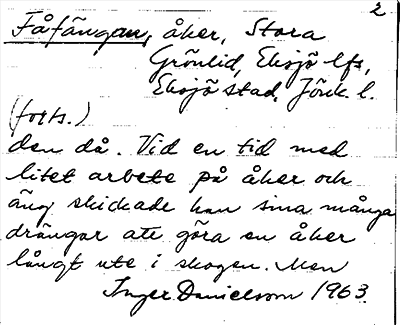 2.
Fåfängan, åker, Stora
Grönlid, Eksjö lfs,
Eksjö stad, Jönk. l.
(forts.)
den då. Vid en tid med
litet arbete på åker och
äng skickade han sina många
drängar att göra en åker
långt ute i skogen. Men
Inger Danielsson 1963.